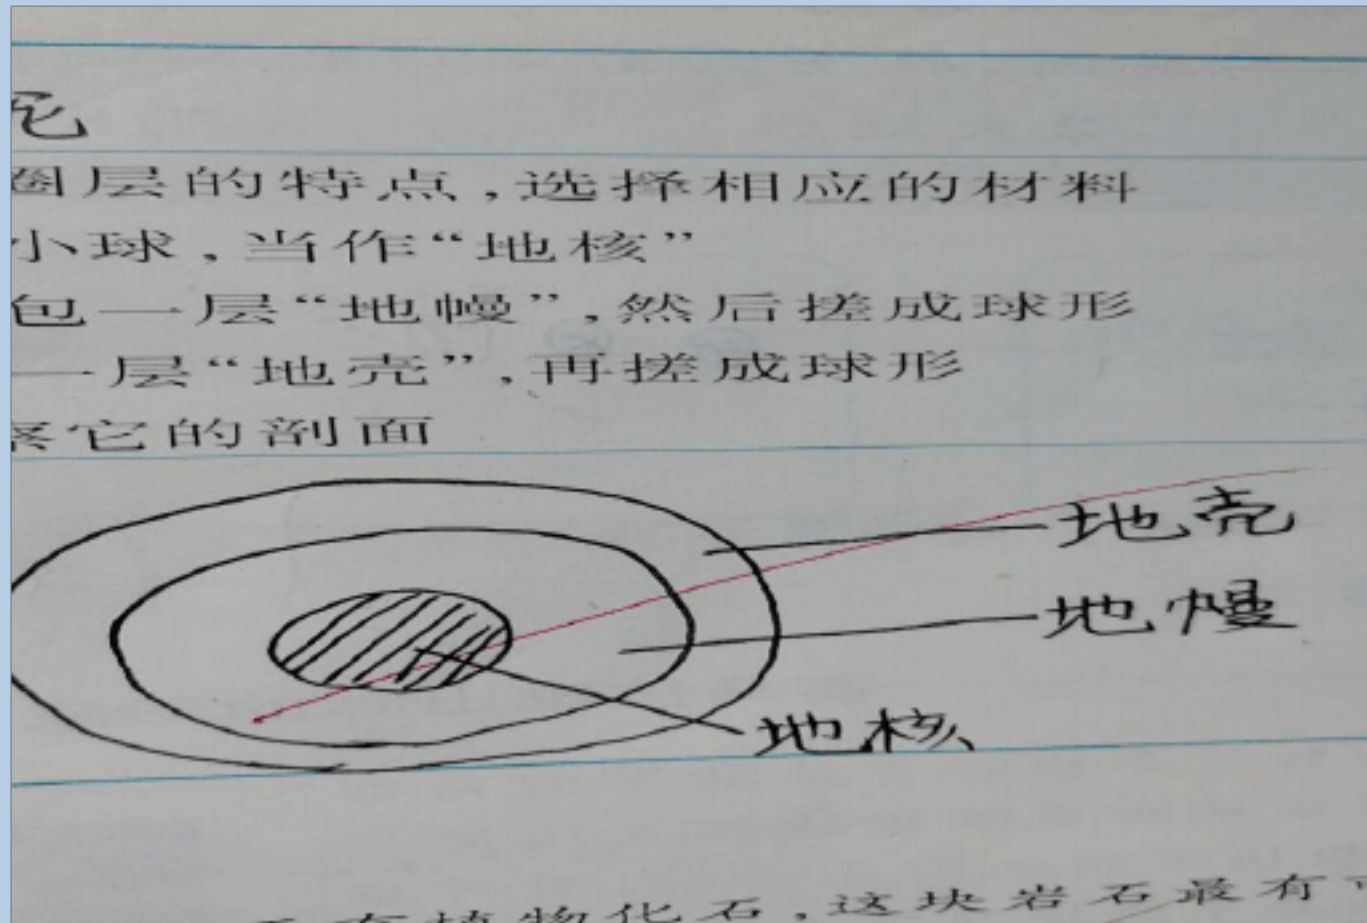 圈层的特点,选择相应的材料
小球,当作“地核”
包一层“地幔”,然后搓成球形
一层“地壳”,再搓成球形
它的剖面
地壳
地幔
地核
植物化石,这块岩石最有